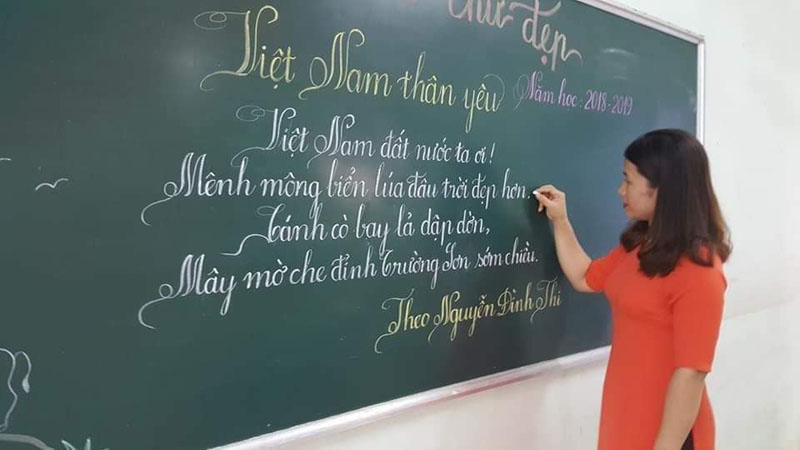 chữ đẹp
Việt Nam thân yêu
Năm học: 2018-2019
Việt Nam đất nước ta ơi!
Mênh mông biển lúa đâu trời đẹp hơn.
Cánh cò bay lả dập dờn,
Mây mờ che đỉnh Trường Sơn sớm chiều.
Theo Nguyễn Đình Thi